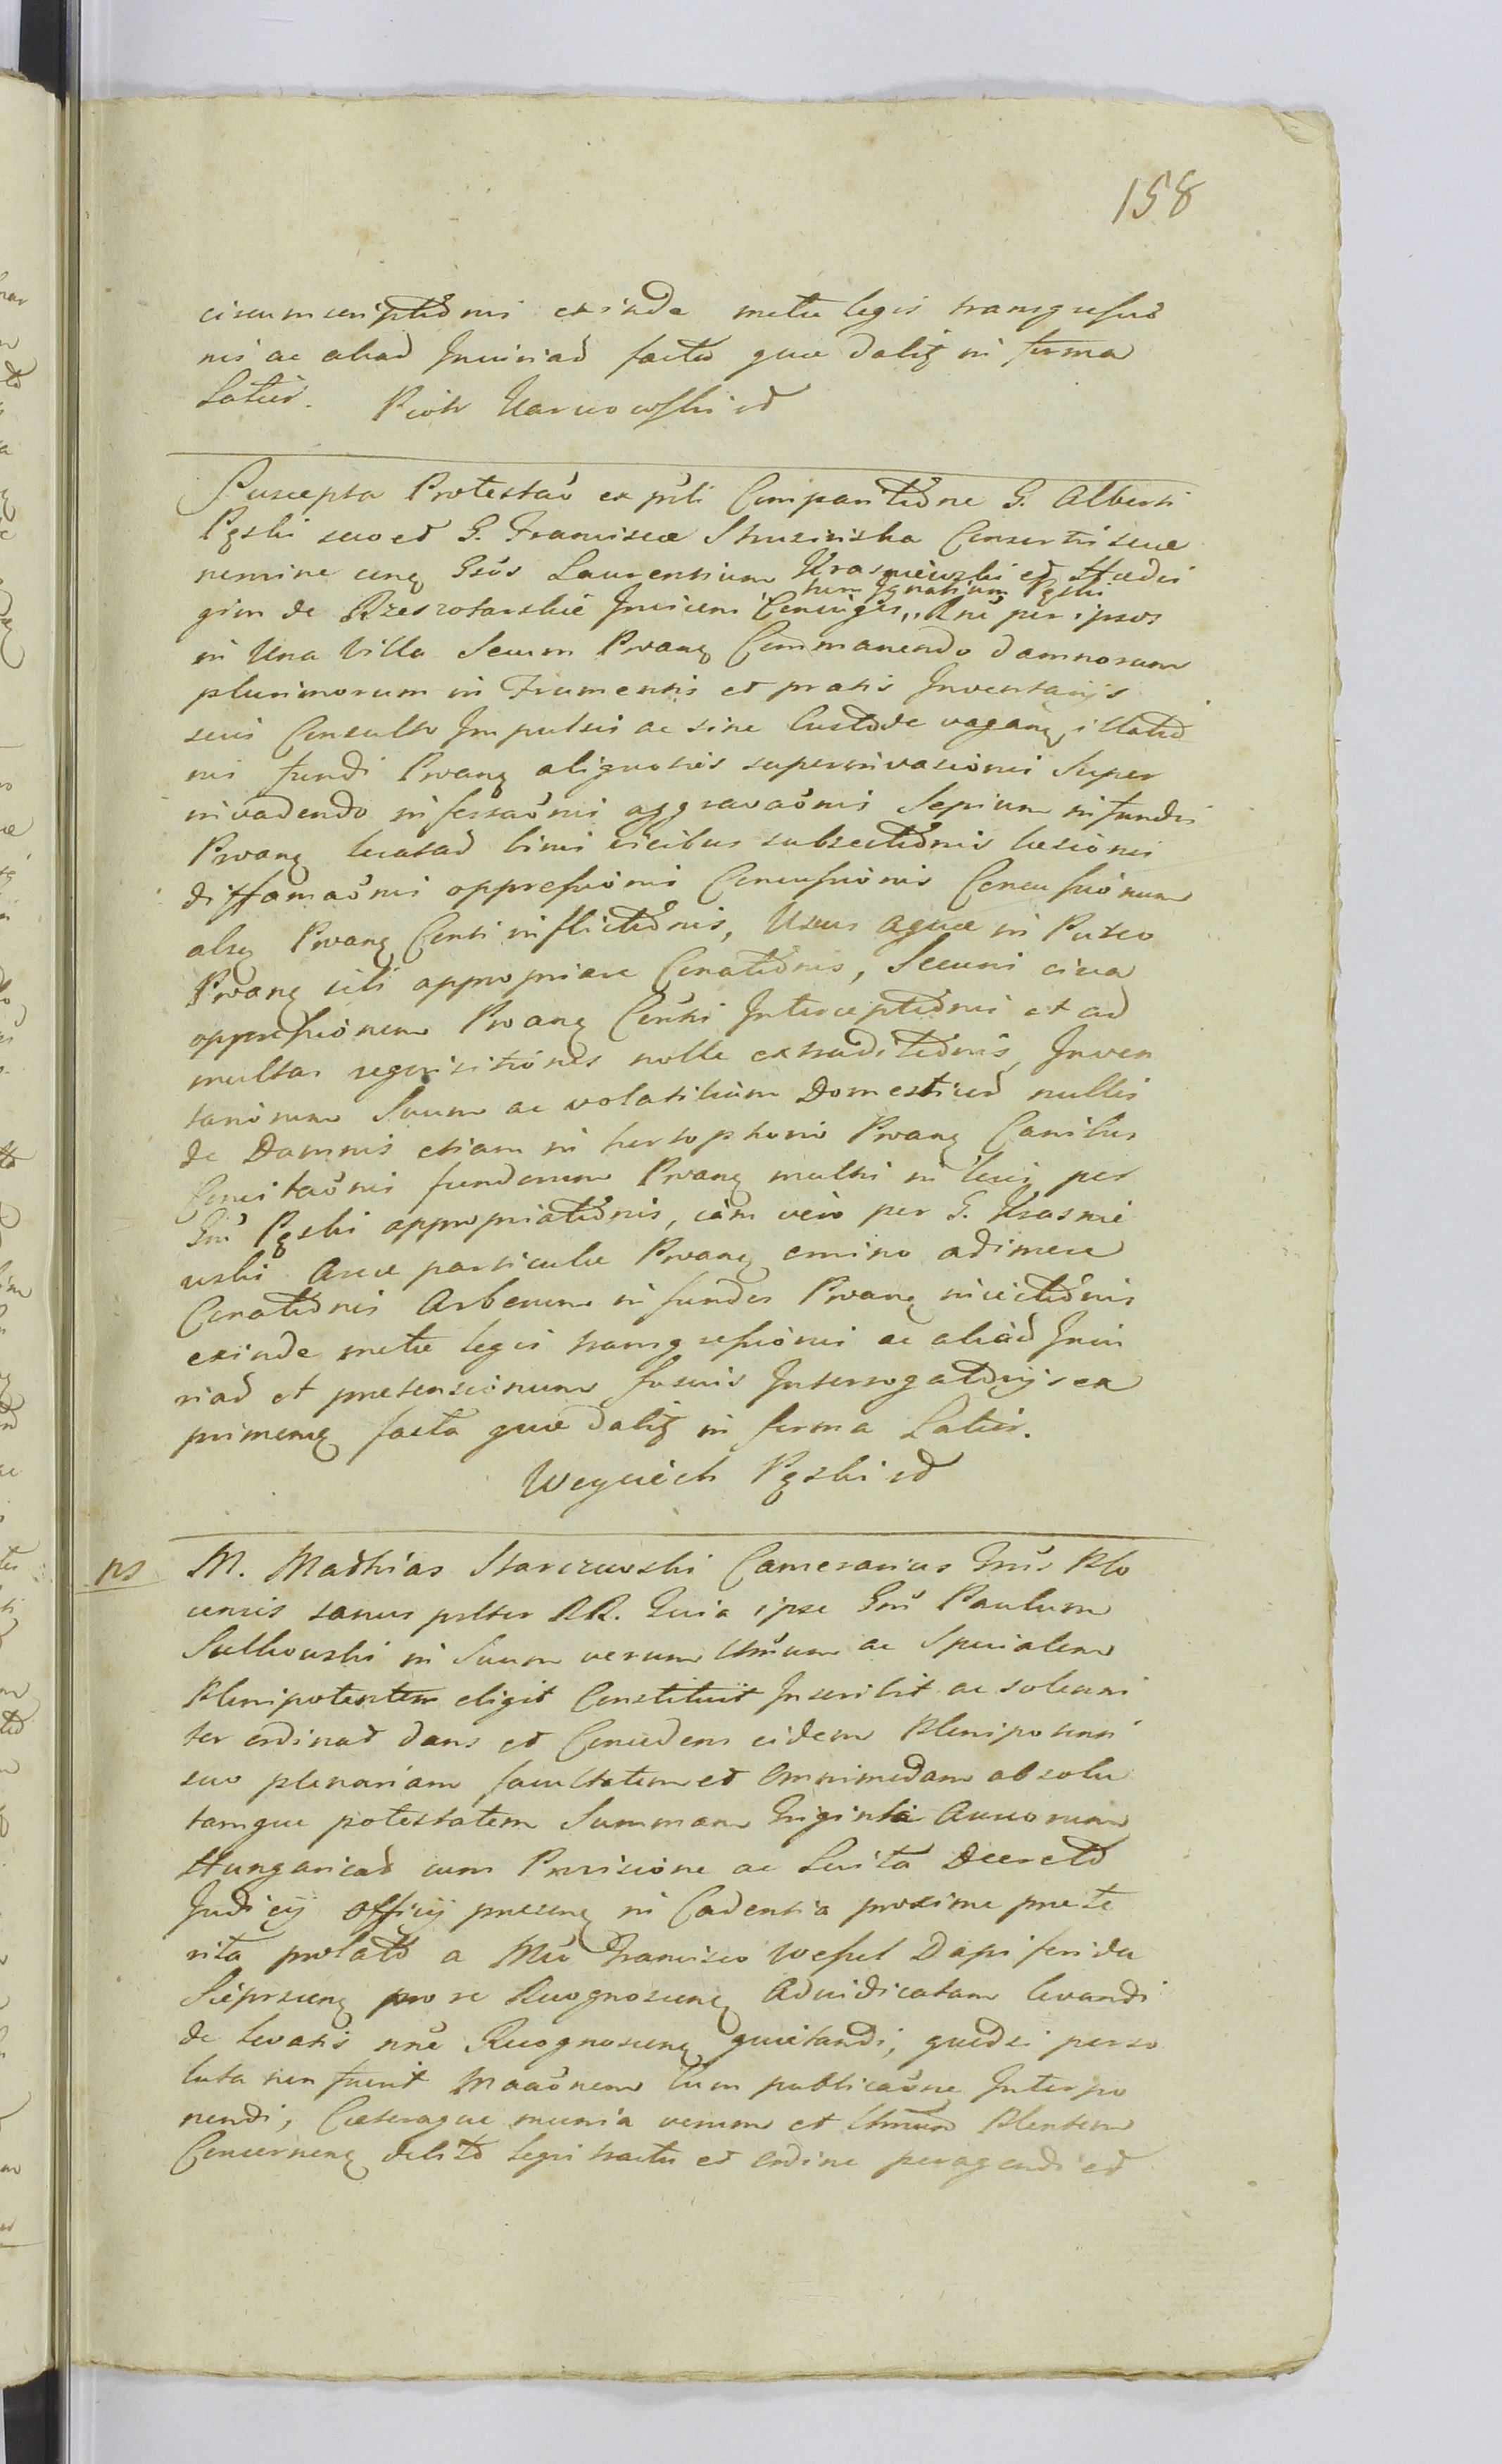 158
circumscriptionis exinde metu legis transgressio
nis ac aliad Iniuriad facta quæ Daliz in forma
Latius. Piotr Karwowski id
Suscepta Protestaô ex psti Comparitione G. Alberti
Pęski suo et G. Franciscæ Skuzinska Consortis suæ
nomine cong Gsôs Laurentium Krasniewski et Hedvi
tum Ignatium Pęski
gim de Rzeszotarskie Invicem Conjuges,, Rne per ipsos
in Una Villa Secum Proang Commanendo damnorum
plurimorum in Frumentis et pratis Inventarijs
suis Consulto Impulsis ac sine Custode vagang, illatio
nis fundi Proang aliquoties superinvasionis super
invadendo infestaônis aggravaônis Sepium in fundis
Proang locatad binis vicibus subsectionis læsionis
diffamaônis oppressionis Concussionis Concussionum
alsq Proang Centi inflictionis, Usus aquæ in Puteo
Proang sibi appropriare Conationis, Securis circa
oppressionem Proang Centi Interceptionis et ad
multas requisitiones nolle extraditionis, Inven
tariorum Suum ac volatilium Domesticad nullis
de Damnis etiam in hortophoris Proang Canibus
Concitaônis fundorum Proang multis in locis per
Gm Pęski appropriationis, iam vero per G. Krasnie
wski Areæ particulæ Proang omnino adimere
Conationis Arborum in fundis Proang iniectionis
exinde metu legis transgressionis ac aliad Iniu
riad et prætensionum fusius Interrogatorijs ex
primeng facta quæ Daliz in forma Latius.
Woyciech Pęski id
ns M. Mathias Starczewski Camerarius Gnus Plo
censis sanus prlter RR. Quia ipse Gm Paulum
Sulkowski in Suum verum Ltmum ac Specialem
Plenipotentem eligit Constituit Inscribit ac solenni
ter ordinat dans et Concedens eidem Plenipotenti
suo plenariam facultatem et omnimodam absolu
tamque potestatem Summam Triginta Aureorum
Hungaricad cum Provisione ac Luita Decreto
Judicij Officij præseng in Cadentia proxime præte
rita prolato a Mco Francisco Wessel Dapiferida
Sieprceng pro re Recognosceng Adiudicatam levandi
de levatis nne Recognosceng quietandi, quodsi perso
luta non fuerit Maaônem cum publicaône Interpo
nendi, Cæteraque munia verum et Ltmum Plentem
Concerneng debito legis tractu et ordine peragendi et